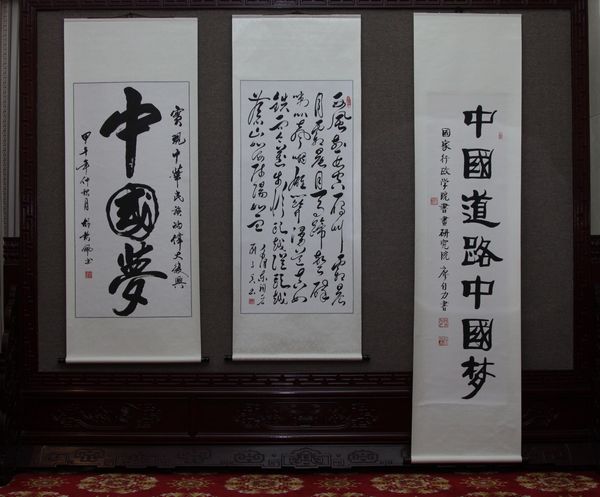 實現中華民族的偉大復興
中國夢
甲午年仲秋月
西風烈長空雁叫霜晨
月霜晨月馬蹄聲碎
喇叭聲咽雄關漫道真如
鐵而今邁步從頭越從頭越
蒼山如海殘陽如血
中國道路中國梦
國家行政学院書畫研究院